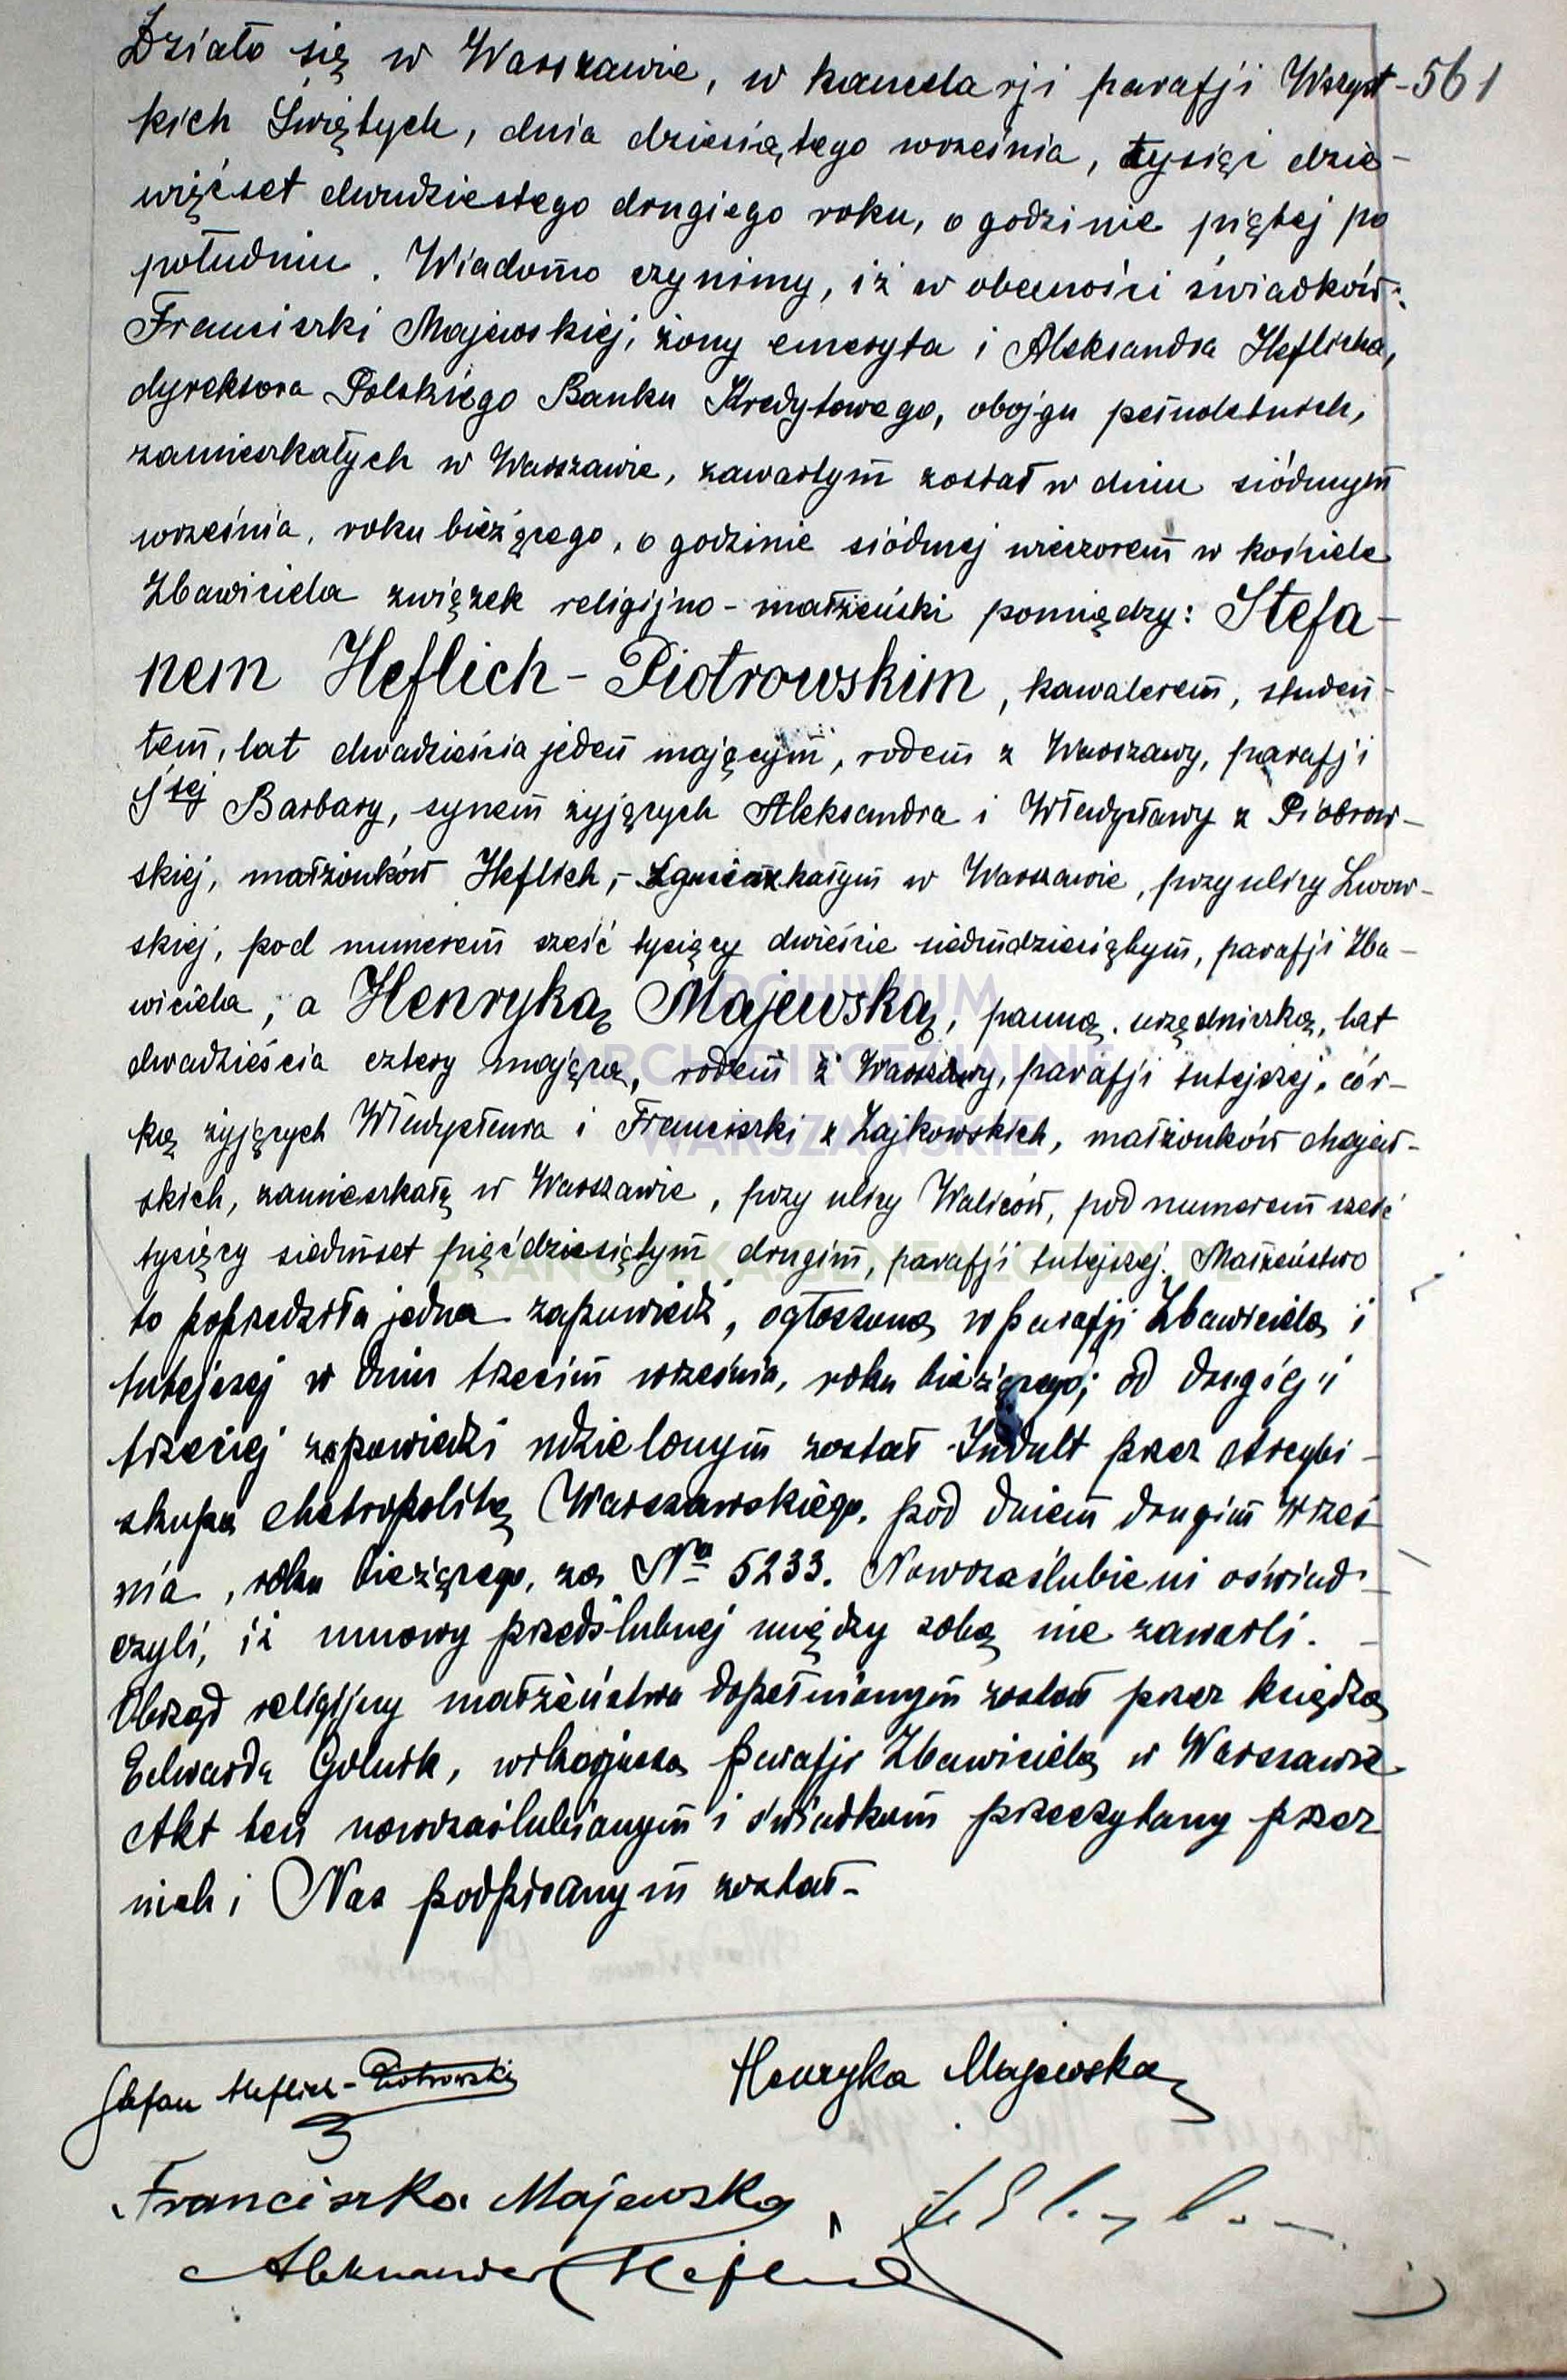 Działo się w Warszawie, w kancelarji parafji Wszyst- 561
kich Świętych, dnia dziesiątego września, tysiąc dzie-
więćset dwudziestego drugiego roku, o godzinie piątej po
południu. Wiadomo czynimy, iż w obecności świadków:
Franciszki Majewskiej, żony emeryta i Aleksandra Heflicha,
dyrektora Polskiego Banku Kredytowego, obojga pełnoletnich,
zamieszkałych w Warszawie, zawartym został w dniu siódmym
września, roku bieżącego, o godzinie siódmej wieczorem w kościele
Zbawiciela związek religijno-małżeński pomiędzy: Stefa-
nem Heflich-Piotrowskim, kawalerem, studen-
tem, lat dwadzieścia jeden mającym, rodem z Warszawy, parafji
Ś-tej Barbary, synem żyjących Aleksandra i Władysławy z Piotrow-
skiej, małżonków Heflich, - zamieszkałym w Warszawie, przy ulicy Lwow-
skiej, pod numerem sześć tysięcy dwieście siedmdziesiątym, parafji Zba-
wiciela, a Henryką Majewską, panną, urzędniczką, lat
dwadzieścia cztery mającą, rodem z Warszawy, parafji tutejszej, cór-
ką żyjących Władysława i Franciszki z Zajkowskich, małżonków Majew-
skich, zamieszkałą w Warszawie, przy ulicy Waliców, pod numerem sześć
tysięcy siedmset pięćdziesiątym drugim, parafji tutejszej. Małżeństwo
to poprzedziła jedna zapowiedź, ogłoszona w parafji Zbawiciela i
tutejszej w dniu trzecim września, roku bieżącego; od drugiej i
trzeciej zapowiedzi udzielonym został Indult przez Arcybi-
skupa Metropolitę Warszawskiego, pod dniem drugim wrześ
nia, roku bieżącego, za No 5233. Nowozaślubieni oświad-
czyli, iż umowy przedślubnej między sobą nie zawarli. -
Obrzęd religijny małżeństwa dopełnionym został przez księdza
Edwarda , wikarjusza parafji Zbawiciela w Warszawie
Akt ten nowozaślubionym i świadkom przeczytany przez
nich i Nas podpisanym został-
Stefan Heflich-Piotrowski Henryka Majewska
Franciszka Majewska
Aleksander Heflich
ARCHIWUM
ARCHIDIECEZJALNE
WARSZAWSKIE